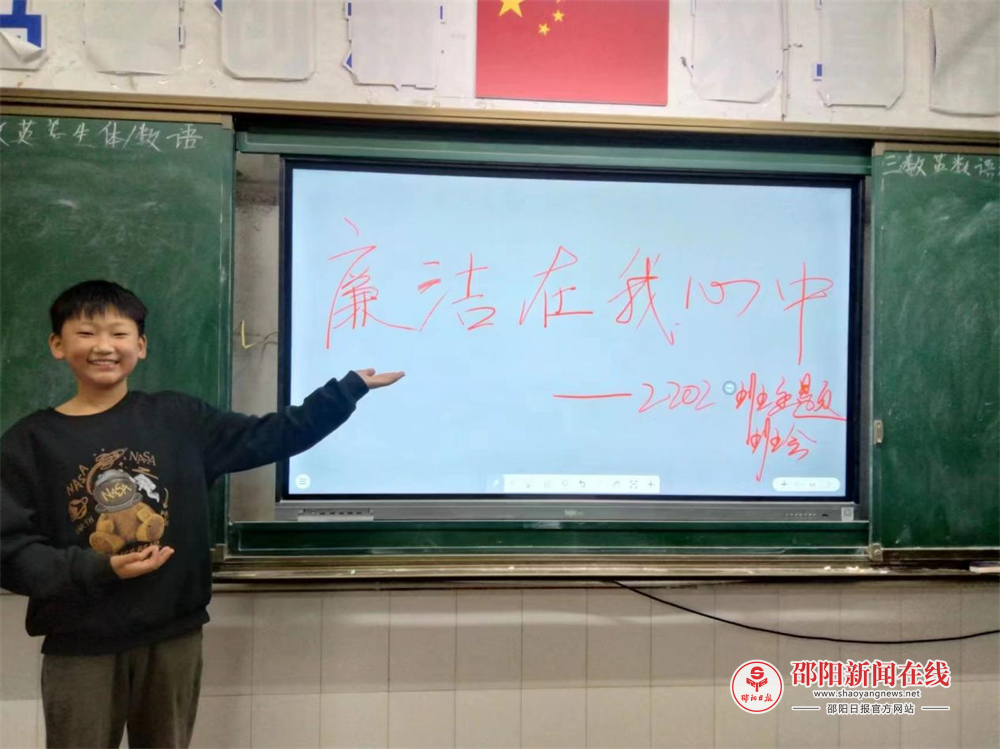 英语生体/数语
三数英数语
廉洁在我心中
——2202班主题
班会
NASA
NASA
NASA
邵阳日报
邵阳新闻在线
www.shaoyangnews.net
邵阳日报官方网站